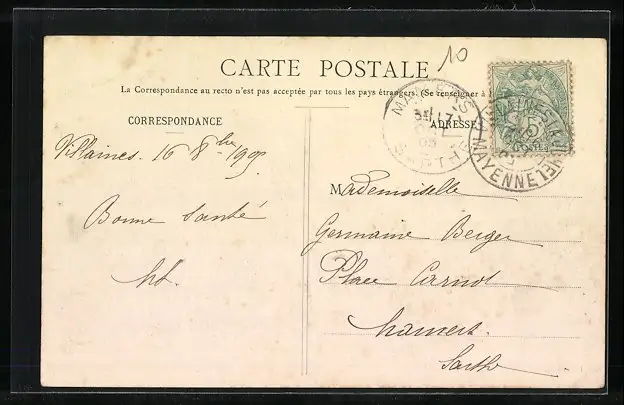 10
CARTE POSTALE
La Correspondance au recto n'est pas acceptée par tous les pays étrangers. (Se renseigner à
CORRESPONDANCE
ADRESSE
MAMERS
SARTHE
MAYENNE
Villaines. 16 8bre 1905
Bonne Santé
Mademoiselle
Germaine Berger
Place Carnot
Mamers.
Sarthe